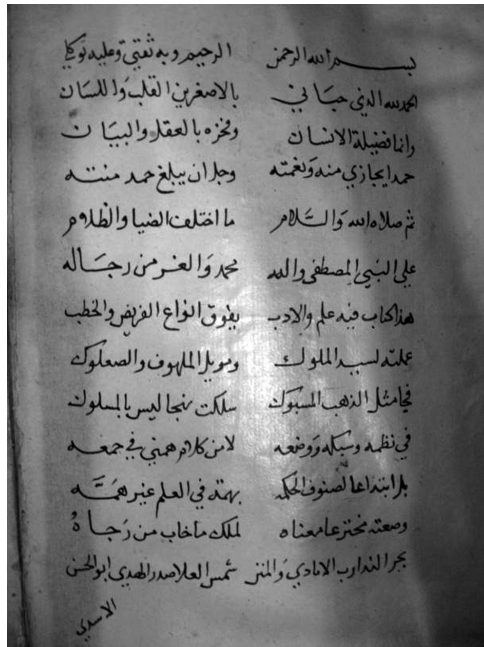 بسم الله الرحمن الرحيم وبه ثقتي وعليه توكلي
الحمد لله الذي حباني بالاصغرين القلب واللسان
وانما فضيلة الانسان وفخره بالعقل والبيان
حمدا يجازي منه ونعمته وجل ان يبلغ حمد منته
ثم صلاه الله والسلام ما اختلف الضيا والظلام
علي النبي المصطفى واله محمد والغر من رجاله
هذا كتاب فيه علم والادب يفوق انواع القريض والخطب
عملته لسيد الملوك وموئل الملهوف والصعلوك
فجا مثل الذهب المسبوك سلكت نهجا ليس بالمسلوك
في نظمه وسبكه ووضعه لا من كلام همني في جمعه
بل ابتداعا لصنوف الحكمه بهمة في العلم غير همه
وصعته مخترعا معناه لملك ما خاب من رجاه
بحر الندا رب الايادي والمنن شمس العلا صدر الهدي ابو الحسن
الاسدي